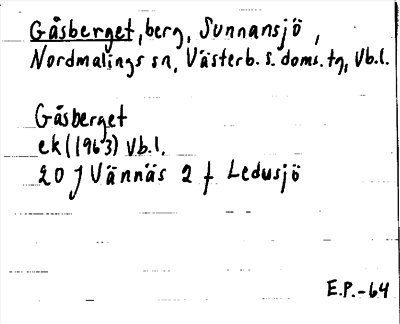 Gåsberget, berg, Sunnansjö,
Nordmalings sn, Västerb. s. doms. tg, Vb.l.
Gåsberget
ek (1963) Vb.l.
20 J Vännäs 2 f Ledusjö
E.P.-64